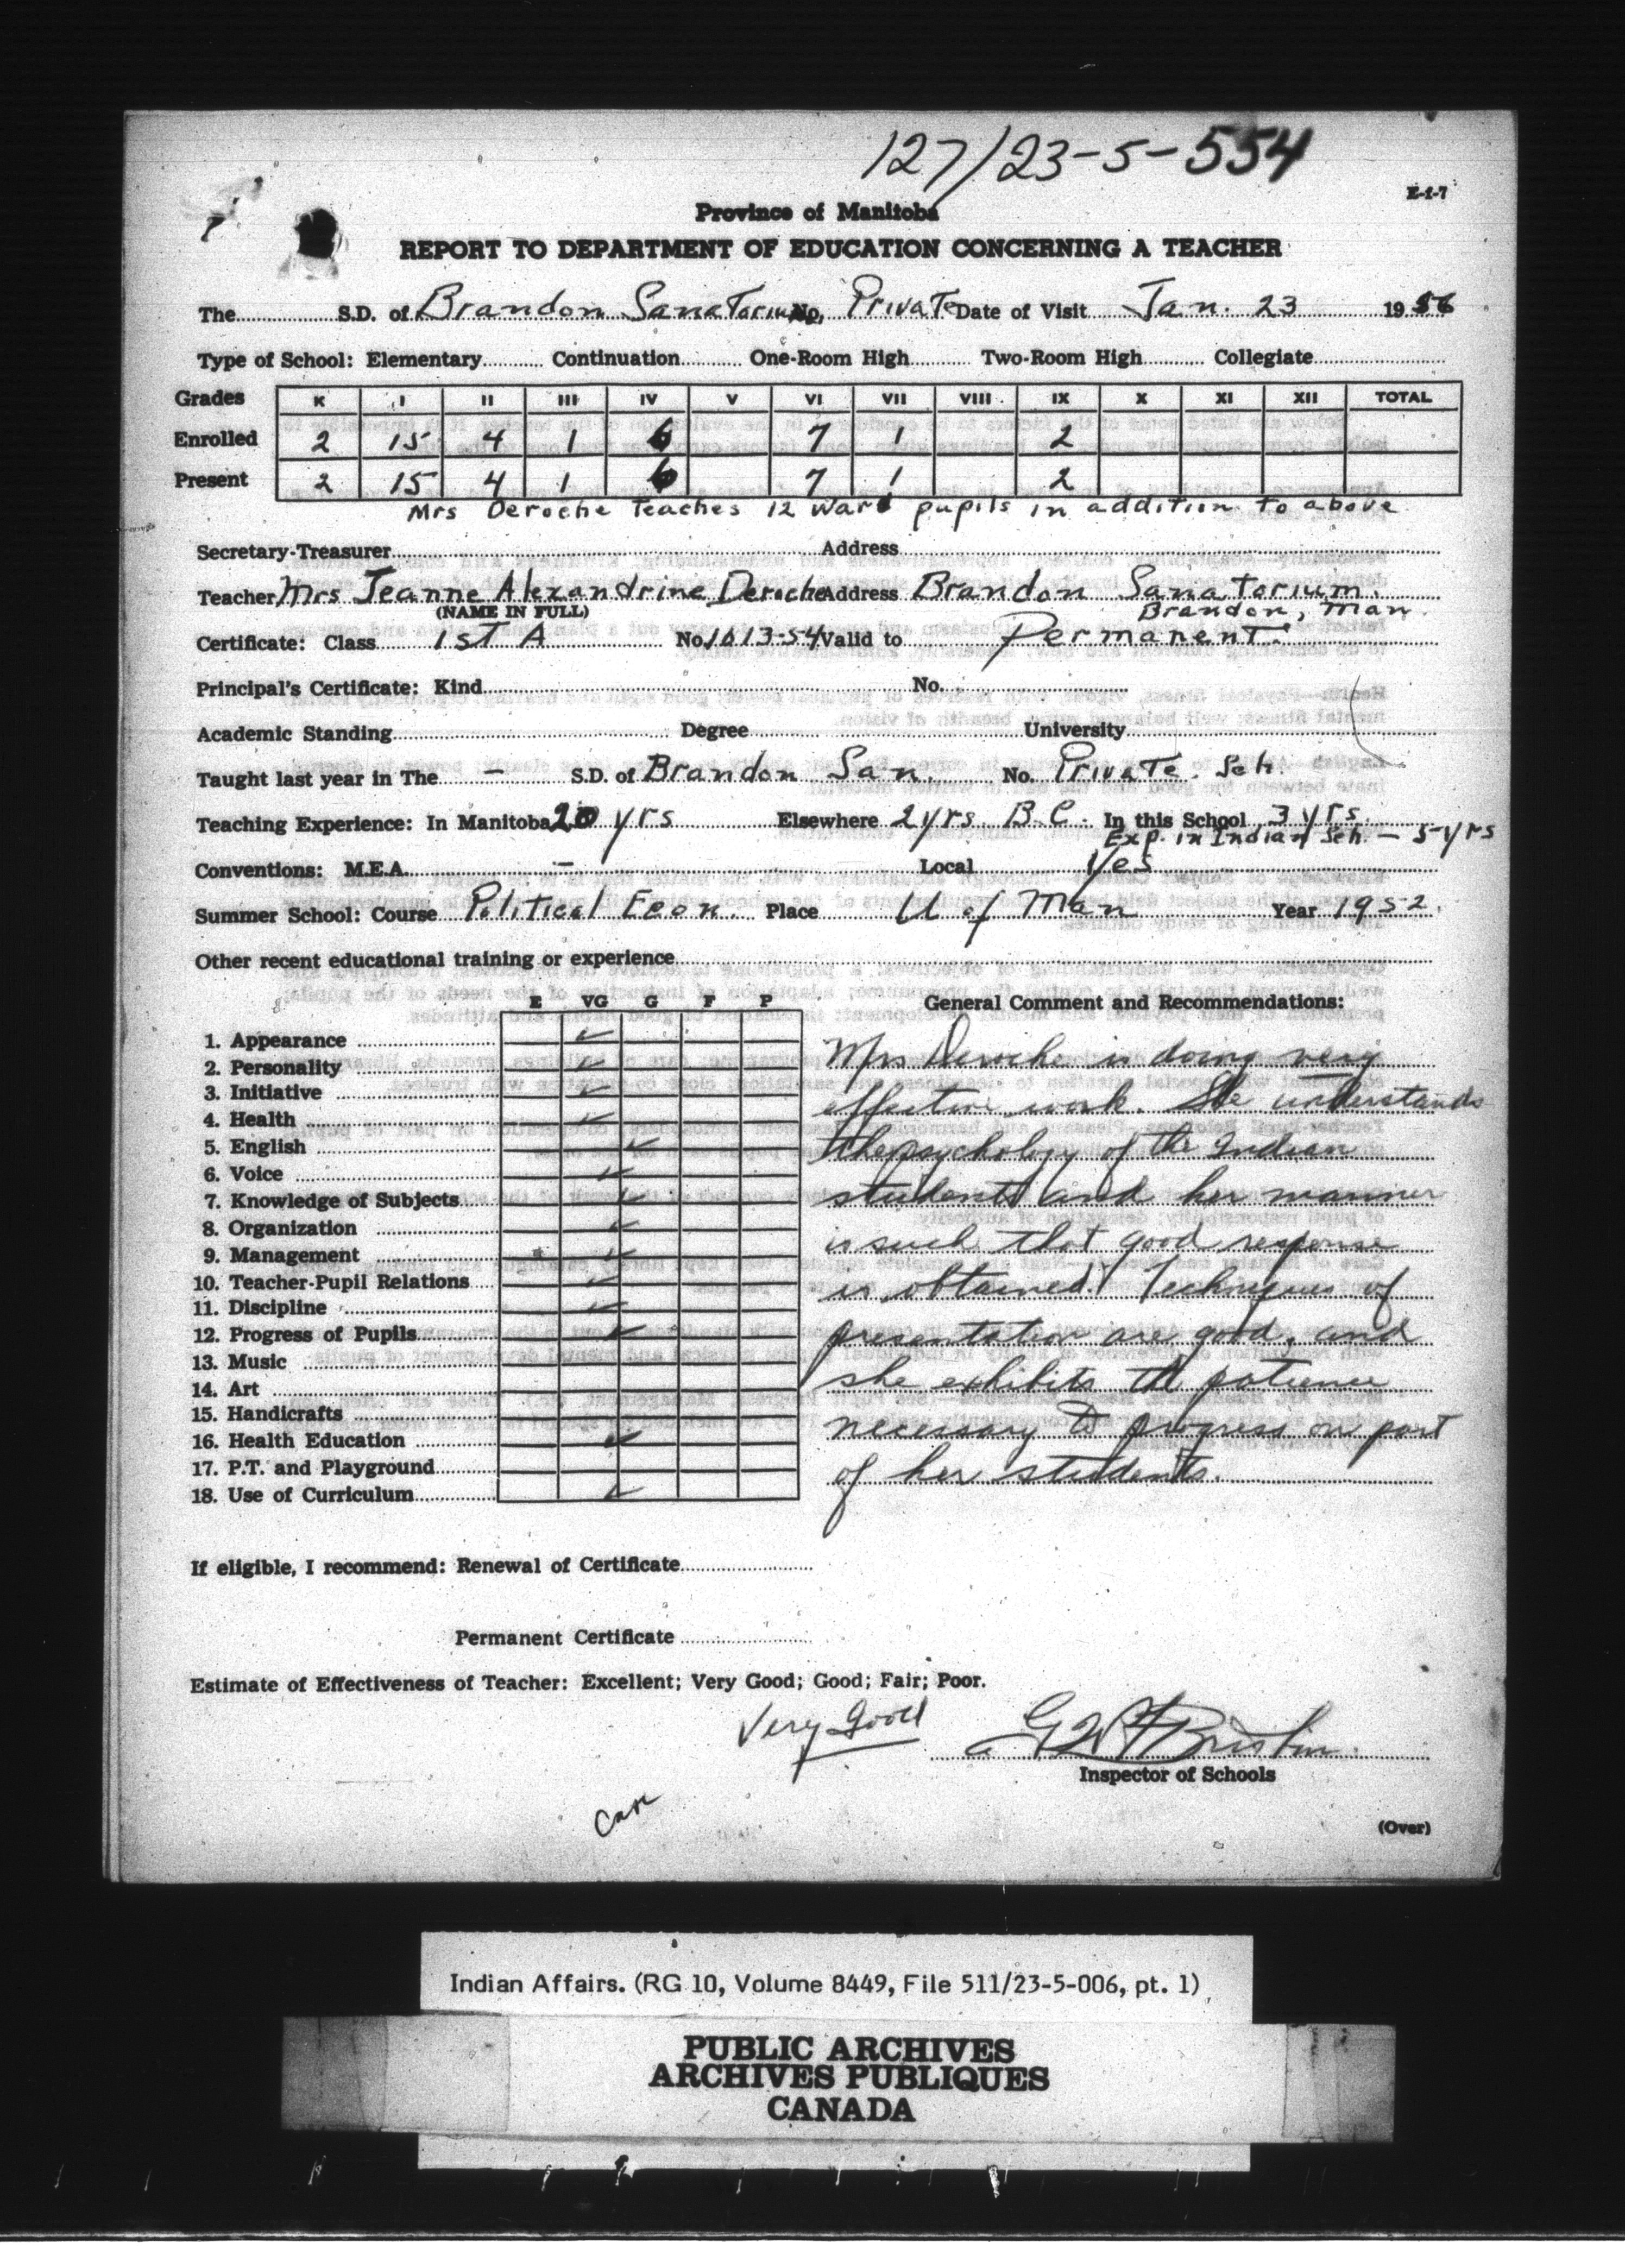 127/23-5-554
E-1-7
Province of Manitoba
REPORT TO DEPARTMENT OF EDUCATION CONCERNING A TEACHER
The S.D. of Brandon Sanatorium No. Private Date of Visit Jan. 23 1956
Type of School: Elementary Continuation One-Room High Two-Room High Collegiate
Grades K I II III IV V VI VII VIII IX X XI XII TOTAL
Enrolled 2 15 4 1 6 7 1 2
Present 2 15 4 1 6 7 1 2
Mrs Deroche Teaches 12 Ward pupils in addition to above
Secretary-Treasurer Address
Teacher Mrs Jeanne Alexandrine Deroche Address Brandon Sanatorium.
(NAME IN FULL) Brandon, Man.
Certificate: Class 1st A No. 1013-54 Valid to Permanent.
Principal's Certificate: Kind No.
Academic Standing Degree University
Taught last year in The - S.D. of Brandon San. No. Private. Sch.
Teaching Experience: In Manitoba 20 yrs Elsewhere 2 yrs B.C. In this School 3 yrs.
Exp. in Indian Sch. - 5 yrs
Conventions: M.E.A. - Local Yes
Summer School: Course Political Econ. Place U of Man Year 1952.
Other recent educational training or experience
E VG G F P General Comment and Recommendations:
1. Appearance
2. Personality
3. Initiative
4. Health
5. English
6. Voice
7. Knowledge of Subjects
8. Organization
9. Management
10. Teacher-Pupil Relations
11. Discipline
12. Progress of Pupils
13. Music
14. Art
15. Handicrafts
16. Health Education
17. P.T. and Playground
18. Use of Curriculum
Mrs Deroche is doing very
effective work. She understands
the psychology of the Indian
students and her manner
is such that good response
is obtained. Techniques of
presentation are good, and
she exhibits the patience
necessary to progress on part
of her students.
If eligible, I recommend: Renewal of Certificate
Permanent Certificate
Estimate of Effectiveness of Teacher: Excellent; Very Good; Good; Fair; Poor.
Very Good
Inspector of Schools
(Over)
Indian Affairs. (RG 10, Volume 8449, File 511/23-5-006, pt. 1)
PUBLIC ARCHIVES
ARCHIVES PUBLIQUES
CANADA